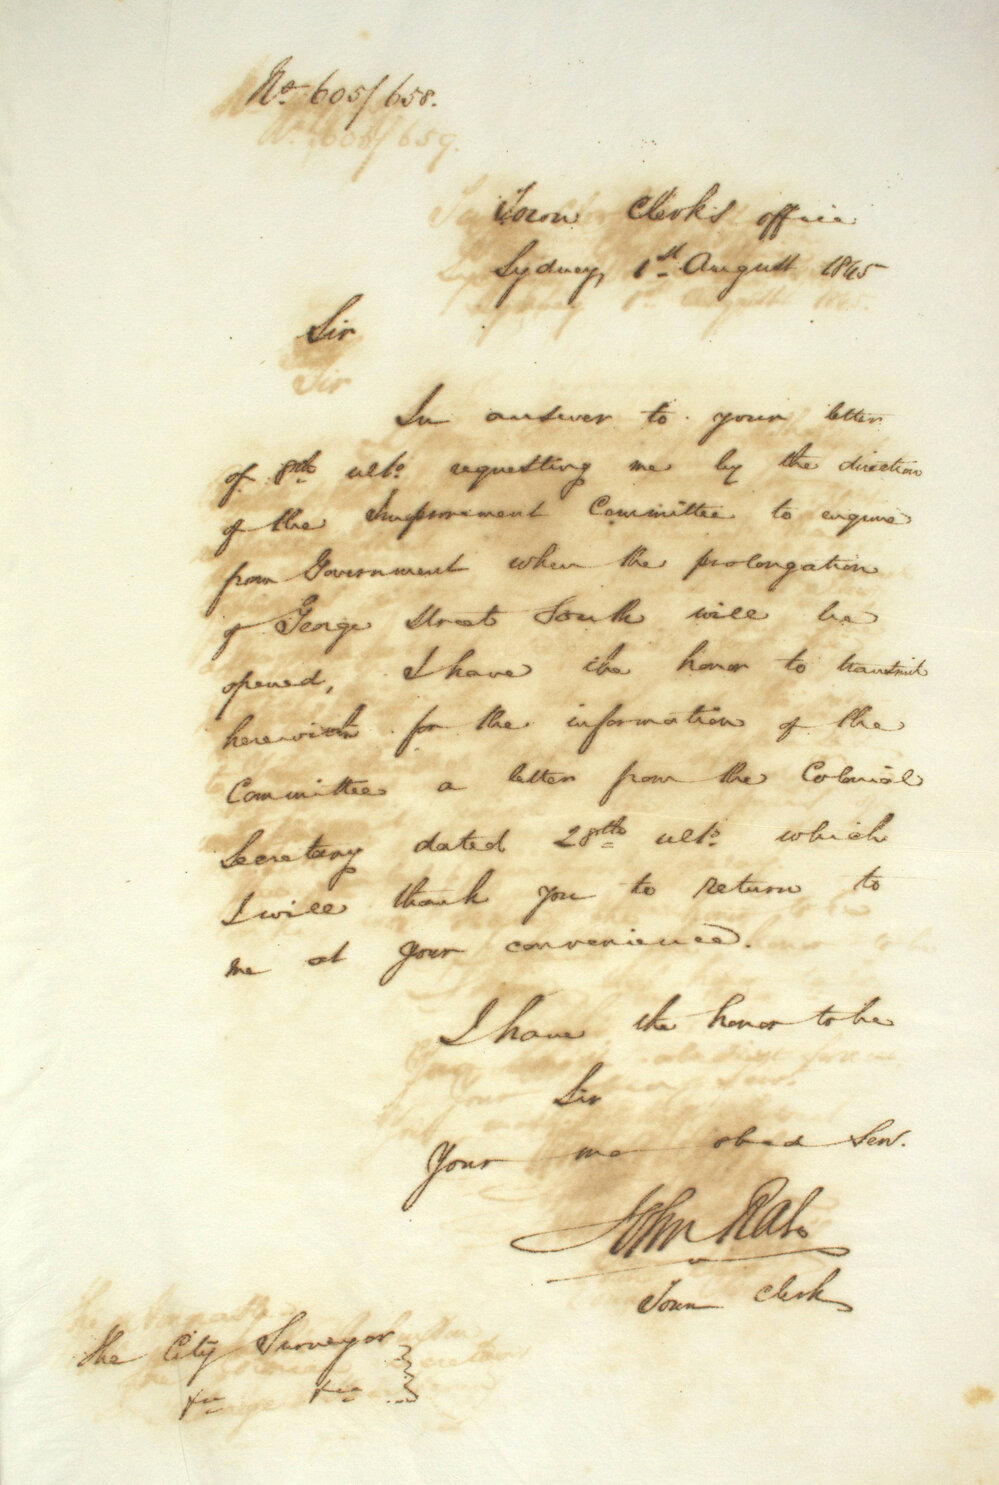 No. 605/658.
Town Clerk's office
Sydney, 1st August 1865
Sir
In answer to your letter
of 8th ulto. requesting me by the direction
of the Improvement Committee to enquire
from Government when the prolongation
of George Street South will be
opened, I have the honor to transmit
herewith for the information of the
Committee a letter from the Colonial
Secretary dated 28th ulto. which
I will thank you to return to
me at your convenience.
I have the honor to be
Sir
Your mo obed Serv.
John Rae
Town Clerk
The City Surveyor
&c &c